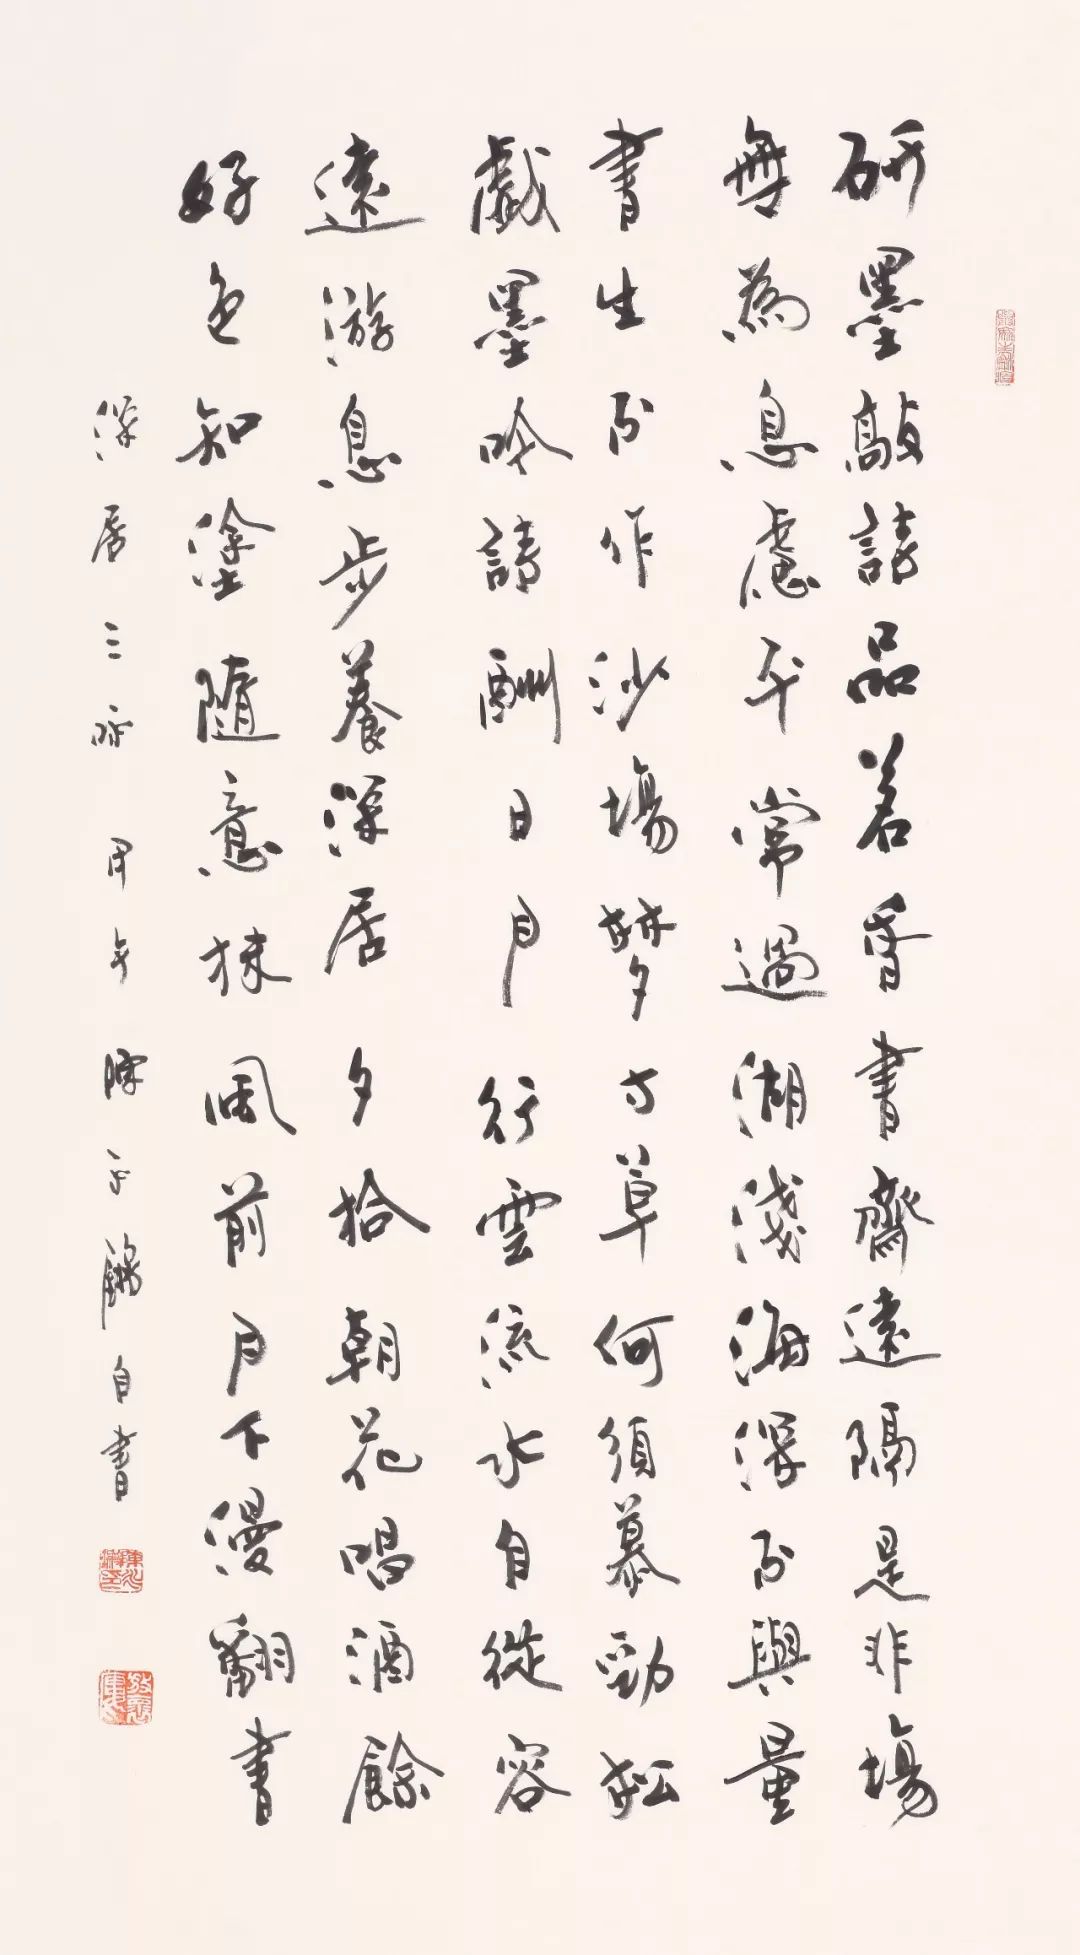 研墨敲詩品茗香書齋遠隔是非場
無為息慮平常過湖淺海深不與量
書生不作沙場夢寸草何須慕勁松
戲墨吟詩酬日月行雲流水自從容
遠游息步養深居夕拾朝花唱酒餘
好色知塗隨意抹風前月下漫翻書
深居三咏 甲午 陳永鏘自書